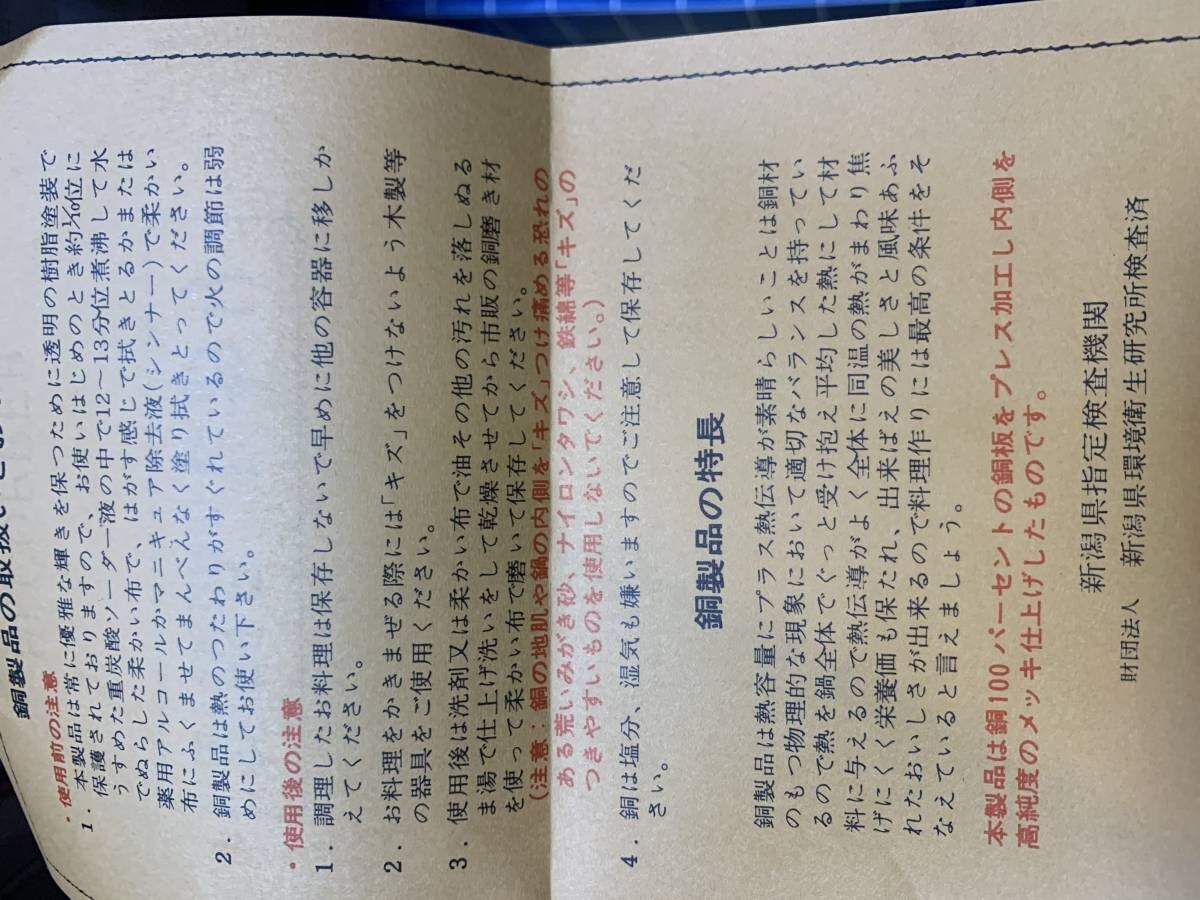 銅製品の取扱い
・使用前の注意
1. 本製品は常に優雅な輝きを保つために透明の樹脂塗装で
保護されておりますので、お使いはじめのとき約1/10位に
うすめた重炭酸ソーダー液の中で12〜13分位煮沸して水
でぬらした柔かい布で、はがす感じで拭きとるかまたは
薬用アルコールかマニキュア除去液(シンナー)で柔かい
布にふくませてまんべんなく塗り拭きとってください。
2. 銅製品は熱のつたわりがすぐれているので火の調節は弱
めにしてお使い下さい。
・使用後の注意
1. 調理したお料理は保存しないで早めに他の容器に移しか
えてください。
2. お料理をかきまぜる際には「キズ」をつけないよう木製等
の器具をご使用ください。
3. 使用後は洗剤又は柔かい布で油その他の汚れを落しぬる
ま湯で仕上げ洗いをして乾燥させてから市販の銅磨き材
を使って柔かい布で磨いて保存してください。
(注意:銅の地肌や鍋の内側を「キズ」つけ痛める恐れの
ある荒いみがき砂、ナイロンタワシ、鉄綿等「キズ」の
つきやすいものを使用しないでください。)
4. 銅は塩分、湿気も嫌いますのでご注意して保存してくだ
さい。
銅製品の特長
銅製品は熱容量にプラス熱伝導が素晴らしいことは銅材
のもつ物理的な現象において適切なバランスを持ってい
るので熱を鍋全体でぐっと受け抱え平均した熱にして材
料に与えるので熱伝導がよく全体に同温の熱がまわり焦
げにくく栄養価も保たれ、出来ばえの美しさと風味あふ
れたおいしさが出来るので料理作りには最高の条件をそ
なえていると言えましょう。
本製品は銅100パーセントの銅板をプレス加工し内側を
高純度のメッキ仕上げしたものです。
新潟県指定検査機関
財団法人 新潟県環境衛生研究所検査済